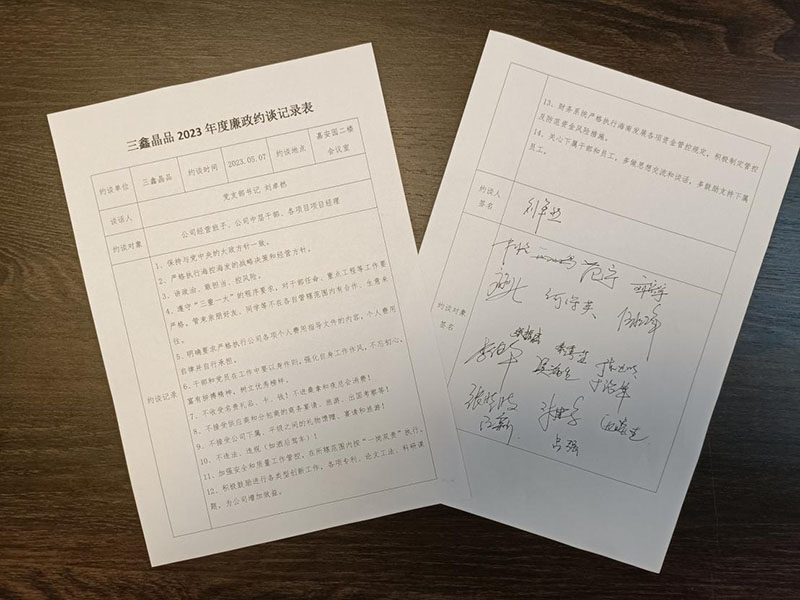 三鑫晶品 2023 年度廉政约谈记录表
约谈单位 三鑫晶品 约谈时间 2023.05.07 约谈地点 嘉安园二楼会议室
谈话人 党支部书记 刘卓然
约谈对象 公司经营班子、公司中层干部、各项目项目经理
约谈记录
1、保持与党中央的大政方针一致。
2、严格执行海控海发的战略决策和经营方针。
3、讲政治、敢担当、控风险。
4、遵守“三重一大”的程序要求，对干部任命、重点工程等工作要
严格，管束亲朋好友、同学等不在各自管辖范围内有合作、生意来
往。
5、明确要求严格执行公司各项个人费用指导文件的内容，个人费用
自律并自行承担。
6、干部和党员在工作中要以身作则，强化自身工作作风，不忘初心，
富有拼搏精神，树立优秀榜样。
7、不收受名贵礼品、卡、钱！不进桑拿和夜总会消费！
8、不接受供应商和分包商的商务宴请、旅游、出国考察等！
9、不接受公司下属、平级之间的礼物馈赠、宴请和旅游！
10、不违法、违规（如酒后驾车）！
11、加强安全和质量工作管控，在所辖范围内按“一岗双责”执行。
12、积极鼓励进行各类型创新工作，各项专利、论文工法、科研课
题，为公司增加效益。
13、财务系统严格执行海南发展各项资金管控规定，积极制定管控
及防范资金风险措施。
14、关心下属干部和员工，多做思想交流和谈话，多鼓励支持下属
员工。
约谈人
签名
约谈对象
签名
何海英
张晓波
吕强